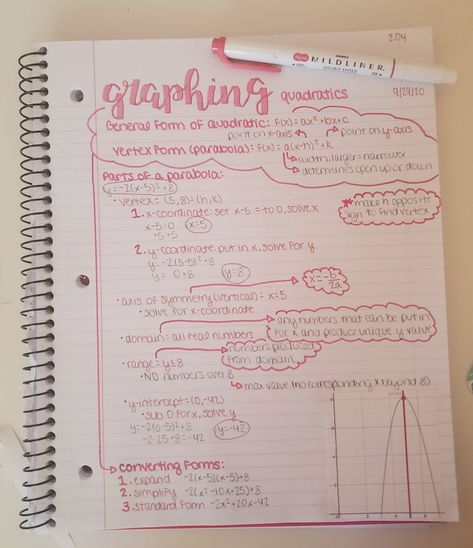 2.04
MILDLINER
graphing quadratics
9/29/20
General form of Quadratic: f(x)= ax²+bx+c
point on x-axis point on y-axis
Vertex form (parabola): f(x)= a(x-h)²+k
width, larger=narrower
determines open up or down
Parts of a parabola:
y=-2(x-5)²+8
• vertex = (5,8)=(h,k)
1. x-coordinate: set x-5 = to 0, solve x
x-5=0 x=5
+5 +5
* make h opposite
sign to find vertex
2. y-coordinate: put in x, solve for y
y=-2(5-5)²+8
y= 0+8 y=8
x=-b/2a
• axis of symmetry (vertical) = x=5
• solve for x-coordinate
• domain= all real numbers
any numbers that can be put in
for x and produce unique y value
• range= y≤8
numbers produced
from domain
• NO numbers over 8
max value (no corresponding x beyond 8)
• y-intercept=(0,-42)
• sub 0 for x, solve y
y=-2(0-5)²+8
-2·25+8=-42 y=-42
converting forms:
1. expand -2(x-5)(x-5)+8
2. simplify -2(x²-10x+25)+8
3. standard form -2x²+20x-42